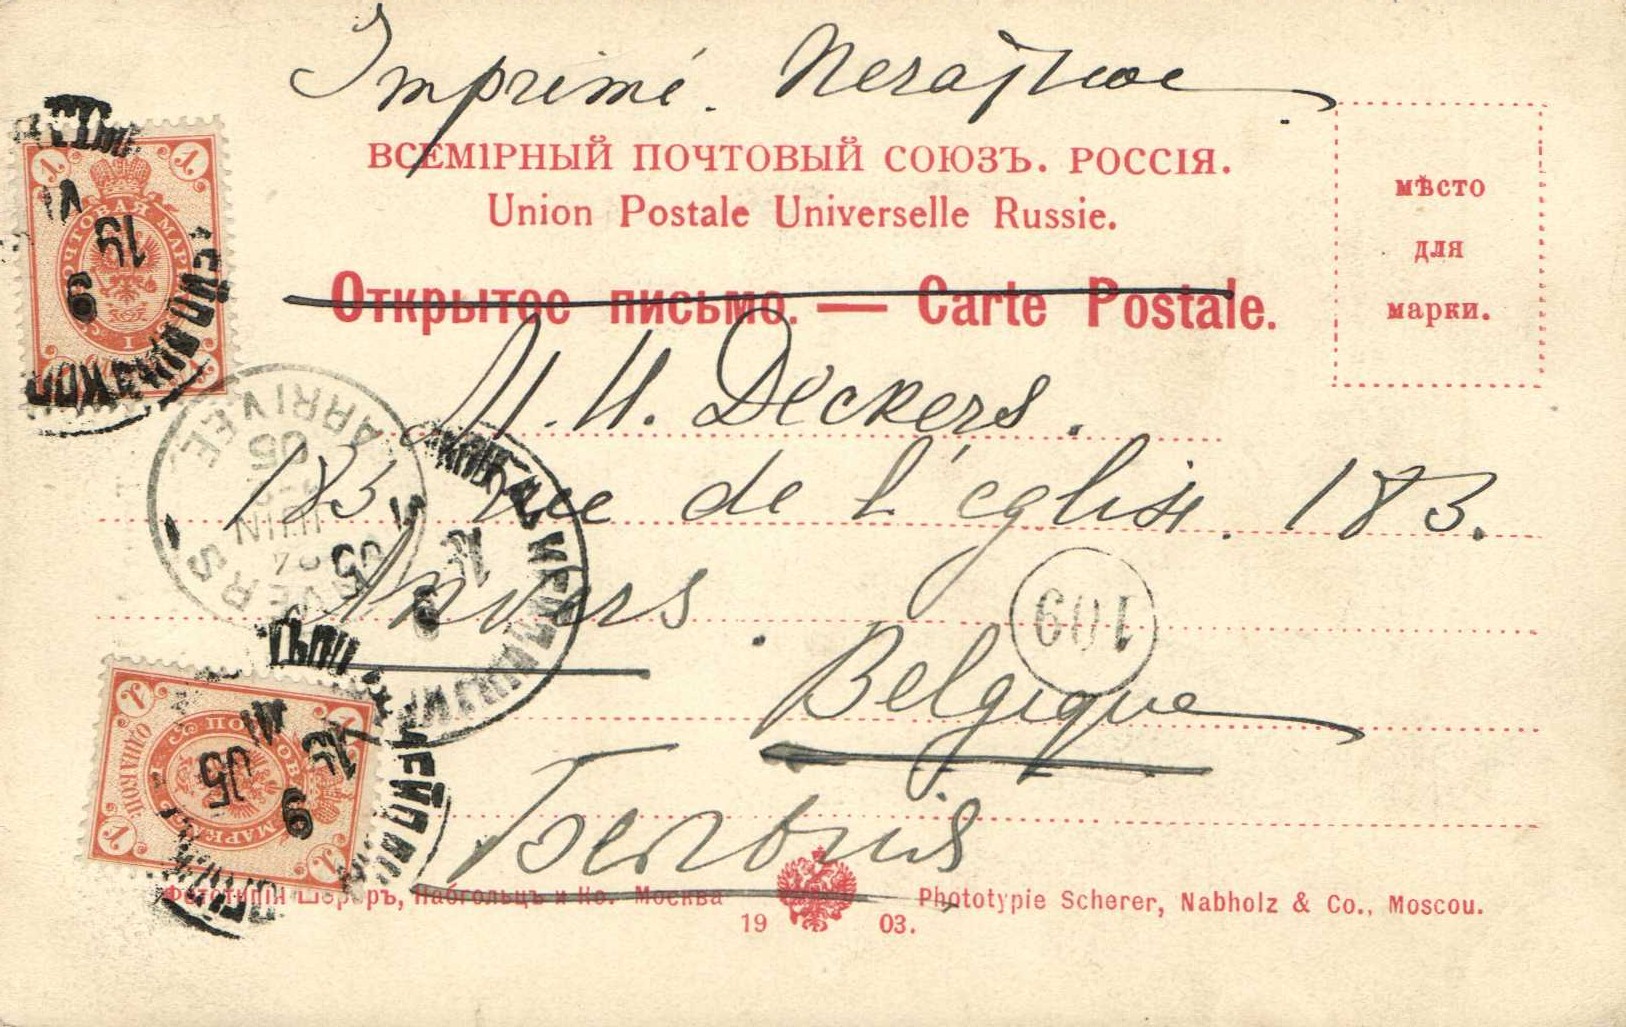 Imprimé. Печатное.
ВСЕМІРНЫЙ ПОЧТОВЫЙ СОЮЗЪ. РОССІЯ.
Union Postale Universelle Russie.
Открытое письмо. — Carte Postale.
МѢСТО
ДЛЯ
МАРКИ.
M. H. Deckers.
183 rue de l'église. 183.
Anvers.
Belgique
Бельгія
109
ANVERS
JUIN
05
ARRIVÉE
ПОЧТОВАЯ МАРКА
1
ПОЧТОВ МАРКА
1
19
9
16
05
9
Фототипія Шереръ, Набгольцъ и Ко. Москва
1903.
Phototypie Scherer, Nabholz & Co., Moscou.